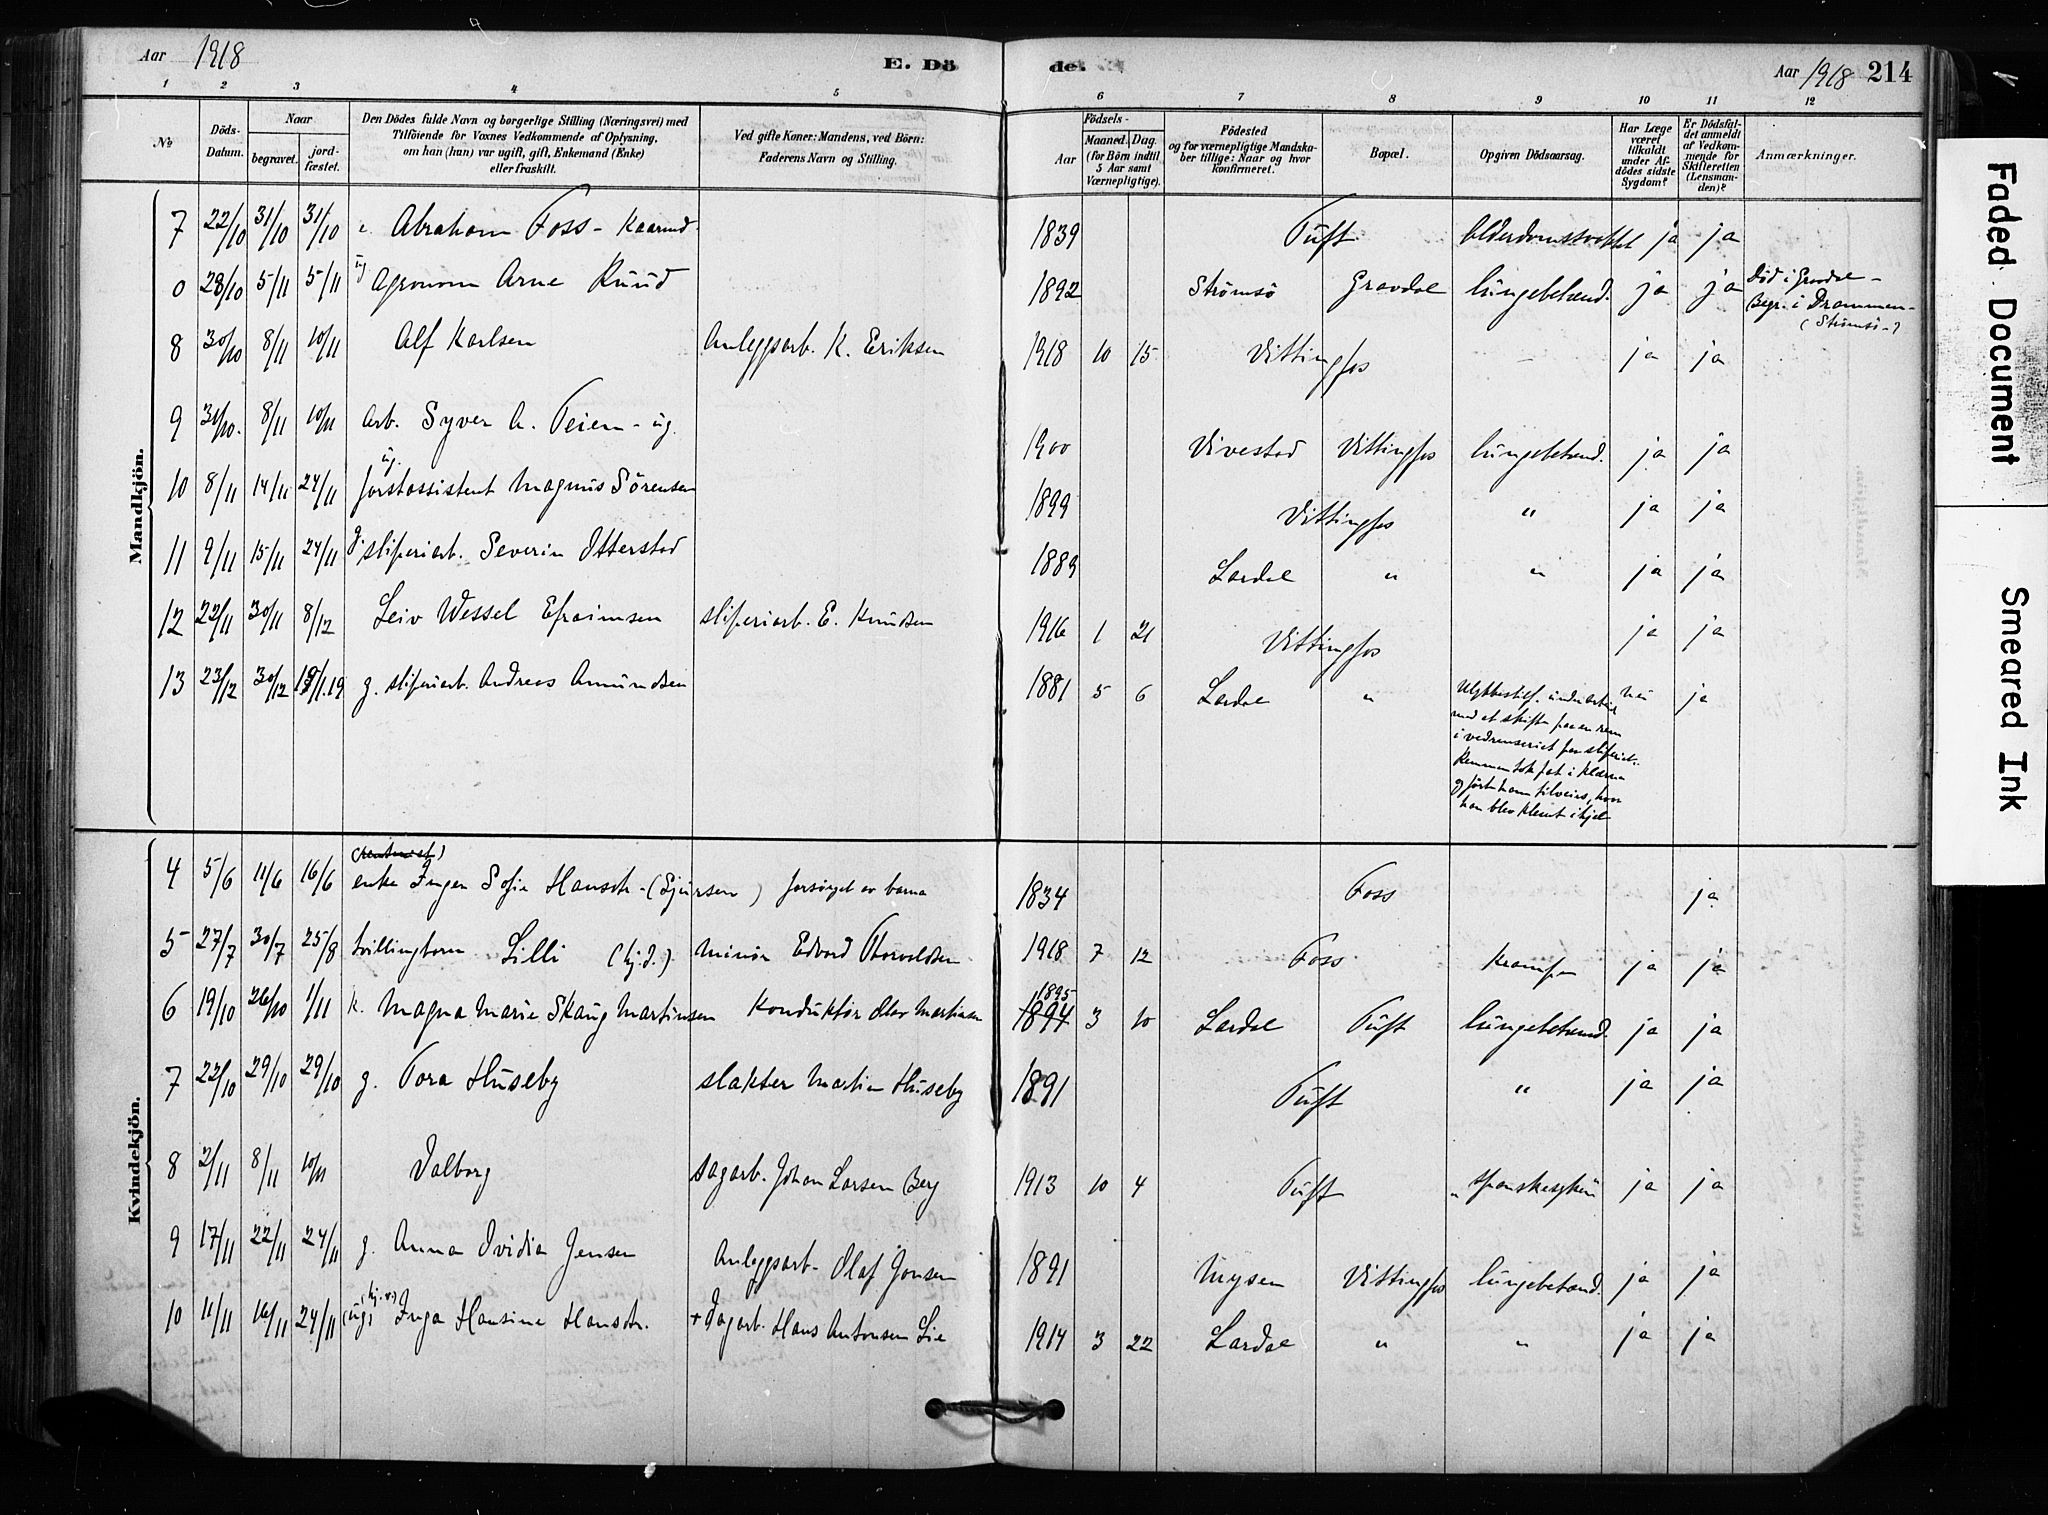 Aar 1918
E. Dö de.
Aar 1918 214
1 2 3 4 5 6 7 8 9 10 11 12
№
Döds-Datum.
Naar
begravet.
jord-fæstet.
Den Dödes fulde Navn og borgerlige Stilling (Næringsvei) med
Tilföiende for Voxnes Vedkommende af Oplysning,
om han (hun) var ugift, gift, Enkemand (Enke)
eller fraskilt.
Ved gifte Koner: Mandens, ved Börn:
Faderens Navn og Stilling.
Födsels-
Aar
Maaned. Dag.
(for Börn indtil
5 Aar samt
Værnepligtige).
Födested
og for værnepligtige Mandska-
ber tillige: Naar og hvor
konfirmeret.
Bopæl.
Opgiven Dödsaarsag.
Har Læge
været
tilkaldt
under Af-
dödes sidste
Sygdom?
Er Dödsfal-
det anmeldt
af Vedkom-
mende for
Skifteretten
(Lensman-
den)?
Anmærkninger.
Mandkjön.
7 22/10 31/10 31/10 Abraham Foss - 1839 Tuft ja ja
0 28/10 5/11 5/11 ug Agronom Arne Ruud 1892 Strømsö Gravdal lungebetænd. ja ja Död i Gravdal -
Begr. i Drammen -
(Strømsö -)
8 30/10 8/11 10/11 Alf Karlsen Anleggsarb. K. Eriksen 1918 10 15 Vittingfos - ja ja
9 31/10. 8/11 10/11 Arb. Syver A. Teien - ug. 1900 Vivestad Vittingfos lungebetænd. ja ja
10 8/11 14/11 24/11 ug. forstassistent Magnus Sörensen 1899 Vittingfos " ja ja
11 9/11 15/11 24/11 g. sliperiarb. Severin Otterstad 1889 Lardal " " ja ja
12 22/11 30/11 8/12 Leiv Wessel Efraimsen sliperiarb. E. Knudsen 1916 1 21 Vittingfos ja ja
13 23/12 30/12 19/1.19 g. sliperiarb. Andreas Amundsen 1881 5 6 Lardal " Ulykkestilf. under arbeid nei ja
med at skifte paa en rem
i vedrenseriet paa sliperiet.
Remmen tok fat i klærne
og førte ham tilveirs, hvor
han blev klemt ihjel
Kvindekjön.
4 5/6 11/6 16/6 enke Inger Sofie Hansdtr - (Sjursen) forsörget av barna 1834 Foss ja
5 27/7 30/7 25/8 tvillingbarn Lilli (hj.d.) Minör Edvard Thorvaldsen 1918 7 12 Foss Krampe ja ja
6 19/10 26/10 1/11 k. Magna Marie Skaug Martinsen Konduktör Olav Martinsen 1895 1894 3 10 Lardal Tuft lungebetænd. ja ja
7 22/10 29/10 29/10 g. Tora Huseby slakter Martin Huseby 1891 Tuft " ja ja
8 2/11 8/11 10/11 Valborg sagarb. Johan Larsen Berg 1913 10 4 Tuft "spanskesyken ja ja
9 17/11 22/11 24/11 g. Anna Ovidia Jensen Anleggsarb. Olaf Jensen 1891 Mysen Vittingfos lungebetænd. ja ja
10 11/11 16/11 24/11 (ug) Inga Hansine Hansdtr. + Dagarb. Hans Antonsen Lie 1914 3 22 Lardal " " ja ja
Faded Document
Smeared Ink